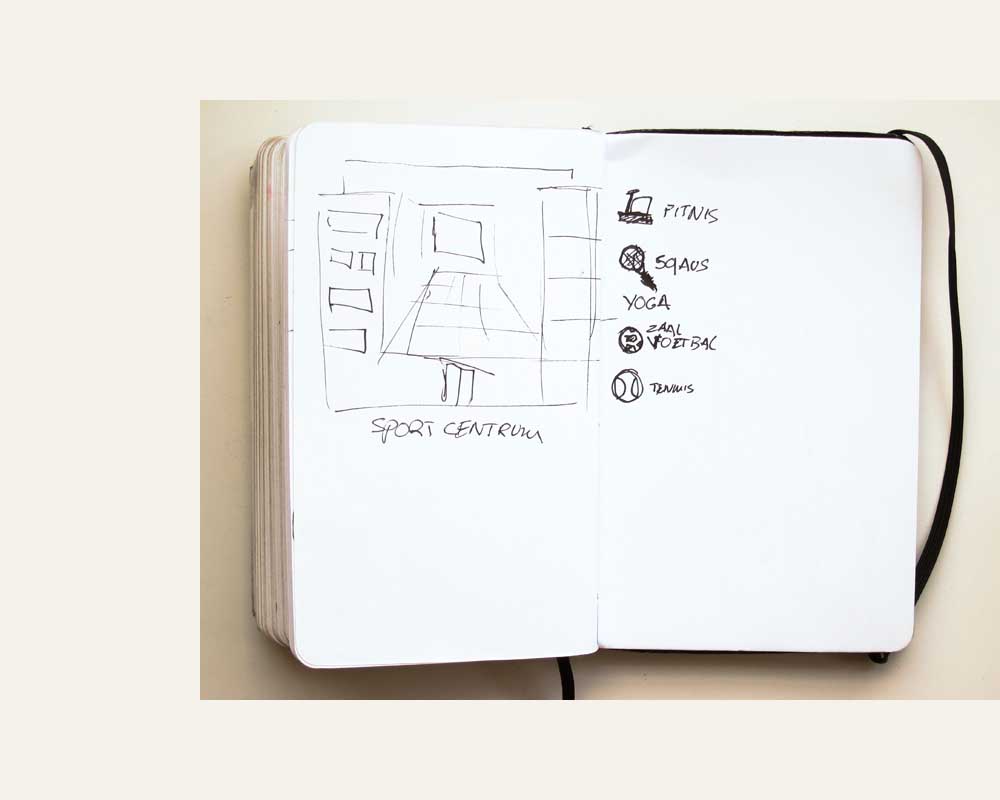 SPORT CENTRUM
FITNIS
SQAUS
YOGA
ZAAL
VOETBAL
TENNIS